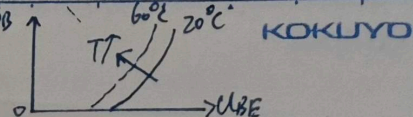 B
60°C
20°C
KOKUYO
T↑
0
UBE